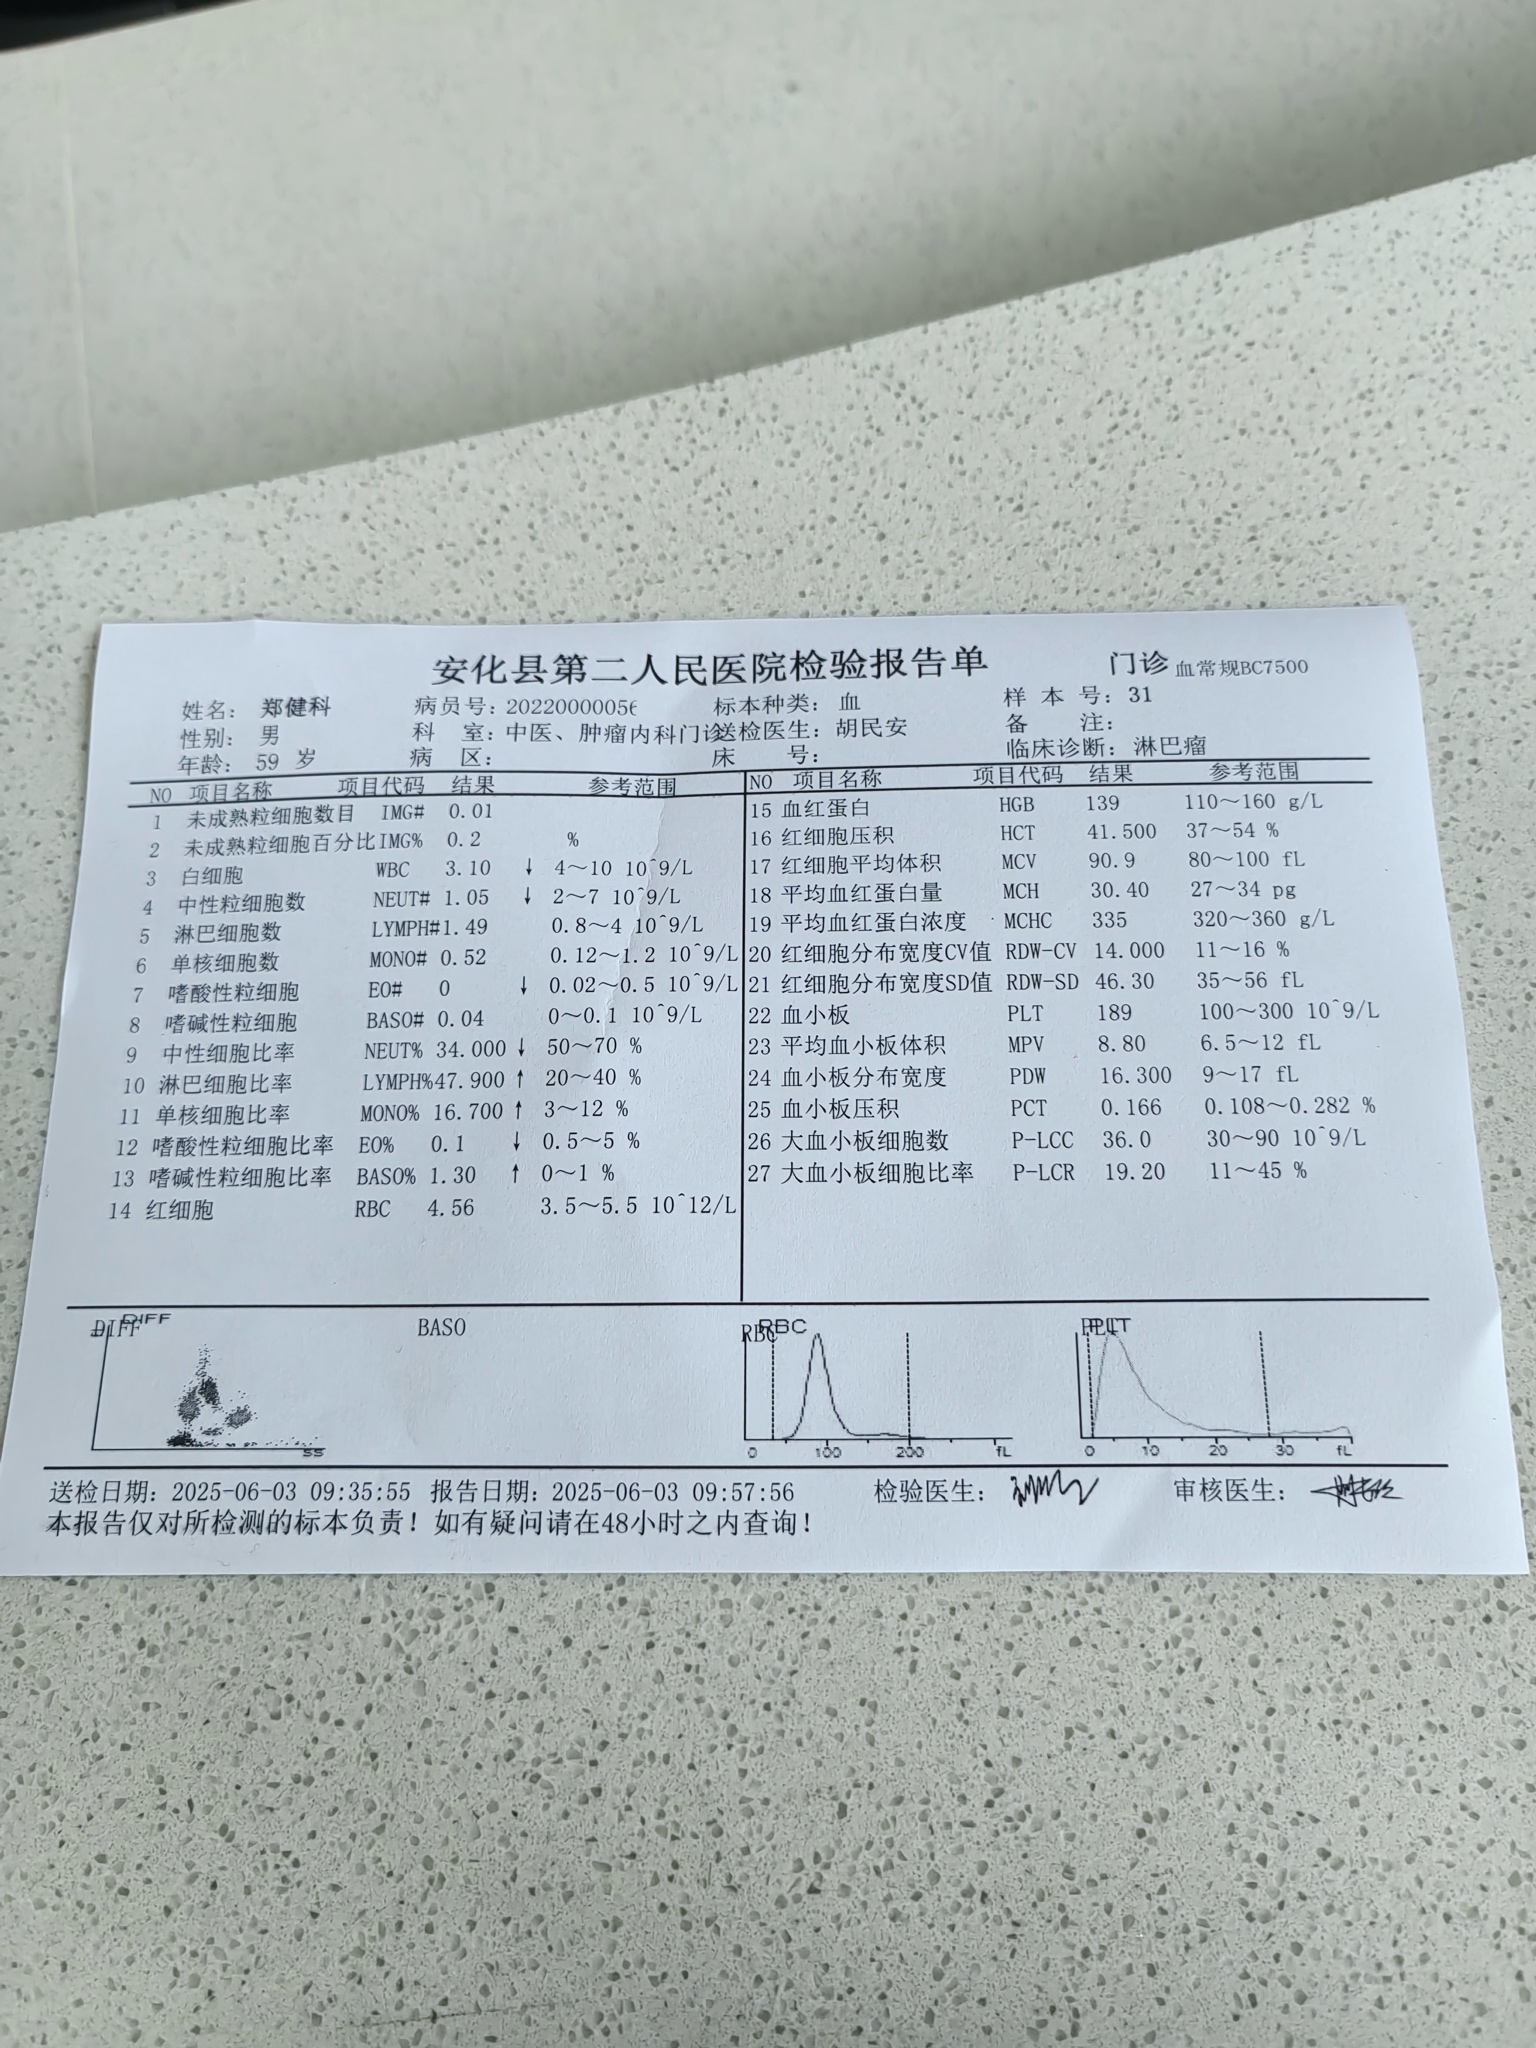 安化县第二人民医院检验报告单 门诊 血常规BC7500
姓名: 郑健科 病员号: 20220000056 标本种类: 血 样 本 号: 31
性别: 男 科 室: 中医、肿瘤内科门诊 送检医生: 胡民安 备 注:
年龄: 59 岁 病 区: 床 号: 临床诊断: 淋巴瘤
NO 项目名称 项目代码 结果 参考范围
1 未成熟粒细胞数目 IMG# 0.01
2 未成熟粒细胞百分比 IMG% 0.2 %
3 白细胞 WBC 3.10 ↓ 4～10 10^9/L
4 中性粒细胞数 NEUT# 1.05 ↓ 2～7 10^9/L
5 淋巴细胞数 LYMPH# 1.49 0.8～4 10^9/L
6 单核细胞数 MONO# 0.52 0.12～1.2 10^9/L
7 嗜酸性粒细胞 EO# 0 ↓ 0.02～0.5 10^9/L
8 嗜碱性粒细胞 BASO# 0.04 0～0.1 10^9/L
9 中性细胞比率 NEUT% 34.000 ↓ 50～70 %
10 淋巴细胞比率 LYMPH% 47.900 ↑ 20～40 %
11 单核细胞比率 MONO% 16.700 ↑ 3～12 %
12 嗜酸性粒细胞比率 EO% 0.1 ↓ 0.5～5 %
13 嗜碱性粒细胞比率 BASO% 1.30 ↑ 0～1 %
14 红细胞 RBC 4.56 3.5～5.5 10^12/L
NO 项目名称 项目代码 结果 参考范围
15 血红蛋白 HGB 139 110～160 g/L
16 红细胞压积 HCT 41.500 37～54 %
17 红细胞平均体积 MCV 90.9 80～100 fL
18 平均血红蛋白量 MCH 30.40 27～34 pg
19 平均血红蛋白浓度 MCHC 335 320～360 g/L
20 红细胞分布宽度CV值 RDW-CV 14.000 11～16 %
21 红细胞分布宽度SD值 RDW-SD 46.30 35～56 fL
22 血小板 PLT 189 100～300 10^9/L
23 平均血小板体积 MPV 8.80 6.5～12 fL
24 血小板分布宽度 PDW 16.300 9～17 fL
25 血小板压积 PCT 0.166 0.108～0.282 %
26 大血小板细胞数 P-LCC 36.0 30～90 10^9/L
27 大血小板细胞比率 P-LCR 19.20 11～45 %
DIFF DIFF BASO RBC RBC PLT PLT
SS 0 100 200 fL 0 10 20 30 fL
送检日期: 2025-06-03 09:35:55 报告日期: 2025-06-03 09:57:56 检验医生: 审核医生:
本报告仅对所检测的标本负责！如有疑问请在48小时之内查询！